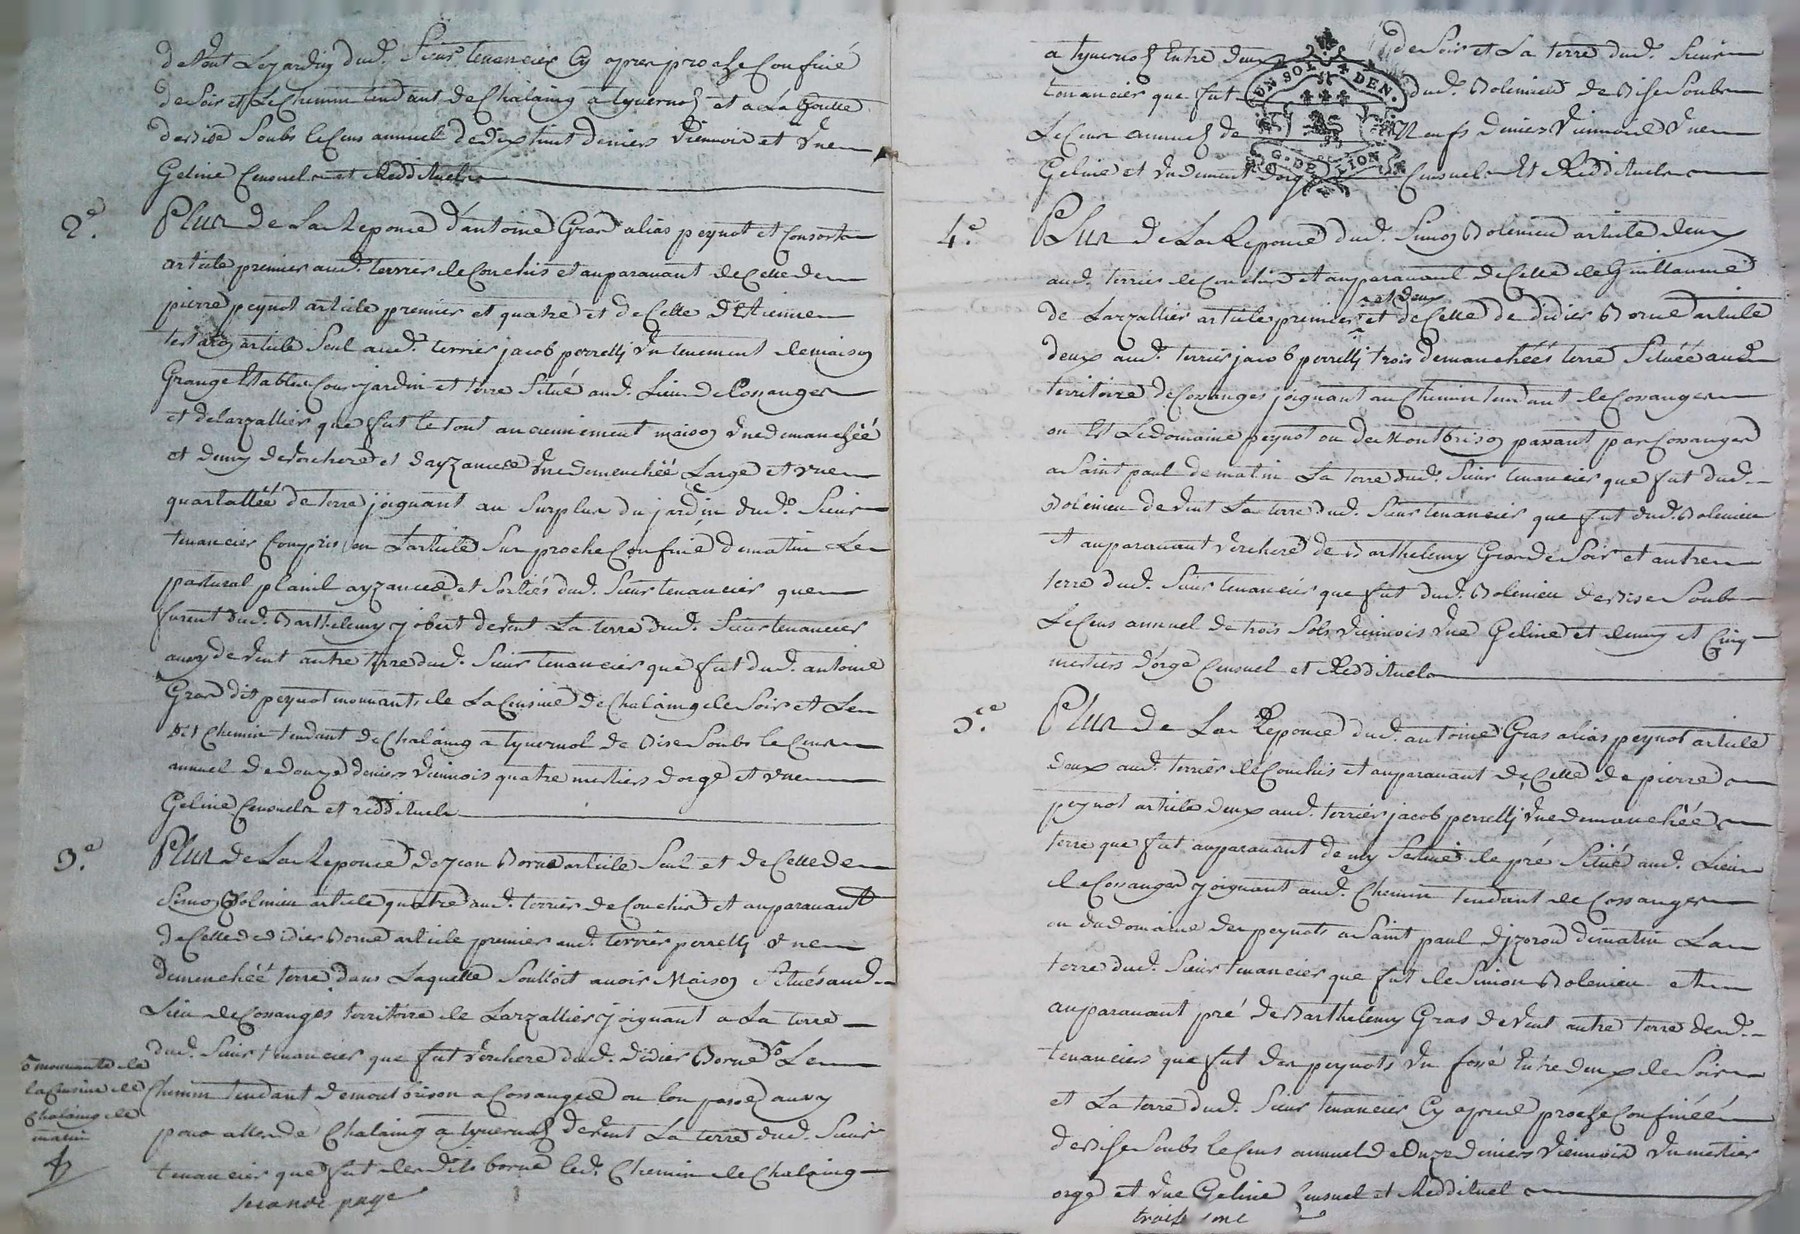 de vent Le jardin dud. Sieur tenancier Cy apres proche Confiné
de Soir et Le Chemin tendant de Chalaing a tyuernol et a La goutte
de bise Soubs le Cens annuel de dixhuit deniers Viennois et Vne
Geline Censuels et Reddituels
2.e Plus de La Reponce d'antoine Gras alias peynot et Consorts
article premier aud. terrier de Couchis et auparauant de Celle de
pierre peynot article premier et quatre et de Celle d'Etienne
article Seul aud. terrier jacob perrelly Vn tenement de maison
Grange Etables Cour jardin et terre Situé aud. Lieu de Cossanges
et de Larzallier que fut le tout anciennement maison Vne demanchéé
et demy de Verchere et d'ayzances Vne demenchéé Large et Vne
quartalléé de terre joignant au Surplus du jardin dud. Sieur
tenancier Compris en L'article Sus proche Confiné de matin Le
pastural plain ayzances et Sorties dud. Sieur tenancier que
furent dud. Barthelemy jobert de vent La terre dud. Sieur tenancier
aussy de Vent autre terre dud. Sieur tenancier que fut dud. antoine
Gras dit peynot mouuants de La Censiue de Chalaing de Soir et Le
dit Chemin tendant de Chalaing a tyuernol de Bise Soubs le Cens
annuel de douze deniers Viennois quatre mestiers d'orge et Vne
Geline Censuels et reddituels
3.e Plus de La Reponce de jean Borne article Seul et de Celle de
Simon Bolenieu article quatre aud. terrier de Couchis et auparauant
de Celle de didier Borne article premier aud. terrier perrelly Vne
demencheé terre dans Laquelle Souloit auoir Maison Situés aud.
Lieu de Cossanges territoire de Larzallier joignant a La terre
dud. Sieur tenancier que fut Verchere dud. didier Borne Le
Chemin tendant de montbrison a Cossanges ou lon passe aussy
pour aller de Chalaing a tyuernol de vent La terre dud. Sieur
tenancier que fut desdits borne led. Chemin de Chalaing
mouuants de
la Censiue de
Chalaing de
matin
seconde page
a tyuernol Entre deux de Soir et La terre dud. Sieur
tenancier que fut dud. Bolenieu de Bise Soubs
Le Cens annuel de Neufs deniers Viennois Vne
Geline et Vn demy d'orge Censuels Et Reddituels
DN SOL. 4 DEN.
G. DE LION
4.e Plus de La Reponce dud. Simon Bolenieu article deux
aud. terrier de Couchis et auparauant de Celle de Guillaume
et deux
de Larzallier article premier et de Celle de didier Borne article
deux aud. terrier jacob perrelly trois demanchéés terre Situéé aud.
territoire de Cossanges joignant au Chemin tendant de Cossanges
ou Est Le domaine peynot ou de Montbrison passant par Cossanges
a Saint paul de matin La terre dud. Sieur tenancier que fut dud.
Bolenieu de Vent La terre dud. Sieur tenancier que fut dud. Bolenieu
et auparauant Verchere de Barthelemy Gras de Soir et autre
terre dud. Sieur tenancier que fut dud. Bolenieu de Bise Soubs
Le Cens annuel de trois Sols Viennois Vne Geline et demy et Cinq
mestiers d'orge Censuel et Reddituels
5.e Plus de La Reponce dud. antoine Gras alias peynot article
deux aud. terrier de Couchis et auparauant de Celle de pierre
peynot article deux aud. terrier jacob perrelly Vne demanchéé
terre que fut auparauant demy de pré Situé aud. Lieu
de Cossanges joignant aud. Chemin tendant de Cossanges
ou du domaine des peynots a Saint paul de matin La
terre dud. Sieur tenancier que fut de Simon Bolenieu et
auparauant pré de Barthelemy Gras de Vent autre terre dud.
tenanciers que fut des peynots Vn fossé Entre deux de Soir
et La terre dud. Sieur tenancier Cy apres proche Confinéé
de Bise Soubs le Cens annuel de Onze deniers Viennois Vn mestier
orge et Vne Geline Censuel et Reddituel
troisieme